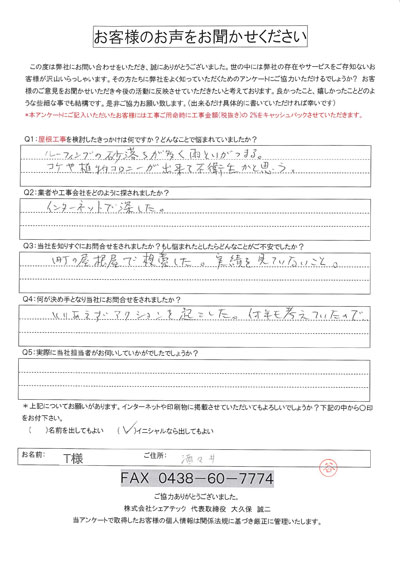 お客様のお声をお聞かせください
この度は弊社にお問い合わせをいただき、誠にありがとうございました。世の中には弊社の存在やサービスをご存知ないお
客様が沢山いらっしゃいます。その方たちに弊社をよく知っていただくためのアンケートにご協力いただけるでしょうか? お客
様のご意見をお聞かせいただき今後の活動に反映させていただきたいと考えております。良かったこと、嬉しかったことどのよ
うな些細な事でも結構です。是非ご協力お願い致します。(出来るだけ具体的に書いていただければ幸いです)
*本アンケートにご記入いただいたお客様には工事ご用命時に工事金額(税抜き)の2%をキャッシュバックさせていただきます。
Q1:屋根工事を検討したきっかけは何ですか?どんなことで悩まれていましたか?
ルーフィングの砂落ちが多く雨といがつまる。
コケや植物コロニーが出来て不衛生かと思う。
Q2:業者や工事会社をどのように探されましたか?
インターネットで探した。
Q3:当社を知りすぐにお問合せをされましたか?もし悩まれたとしたらどんなことがご不安でしたか?
町の屋根屋で検索した。実績を見ていないこと。
Q4:何が決め手となり当社にお問合せをされましたか?
とりあえずアクションを起こした。何年も考えていたので
Q5:実際に当社担当者がお伺いしていかがでしたでしょうか?
*上記についてお願いがあります。インターネットや印刷物に掲載させていただいてもよろしいでしょうか?下記の中から〇印
をお付下さい。
( )名前を出してもよい (✓)イニシャルなら出してもよい
お名前: T様 ご住所:
FAX 0438-60-7774
ご協力ありがとうございました。
株式会社シェアテック 代表取締役 大久保 誠二
当アンケートで取得したお客様の個人情報は関係法規に基づき厳正に管理いたします。